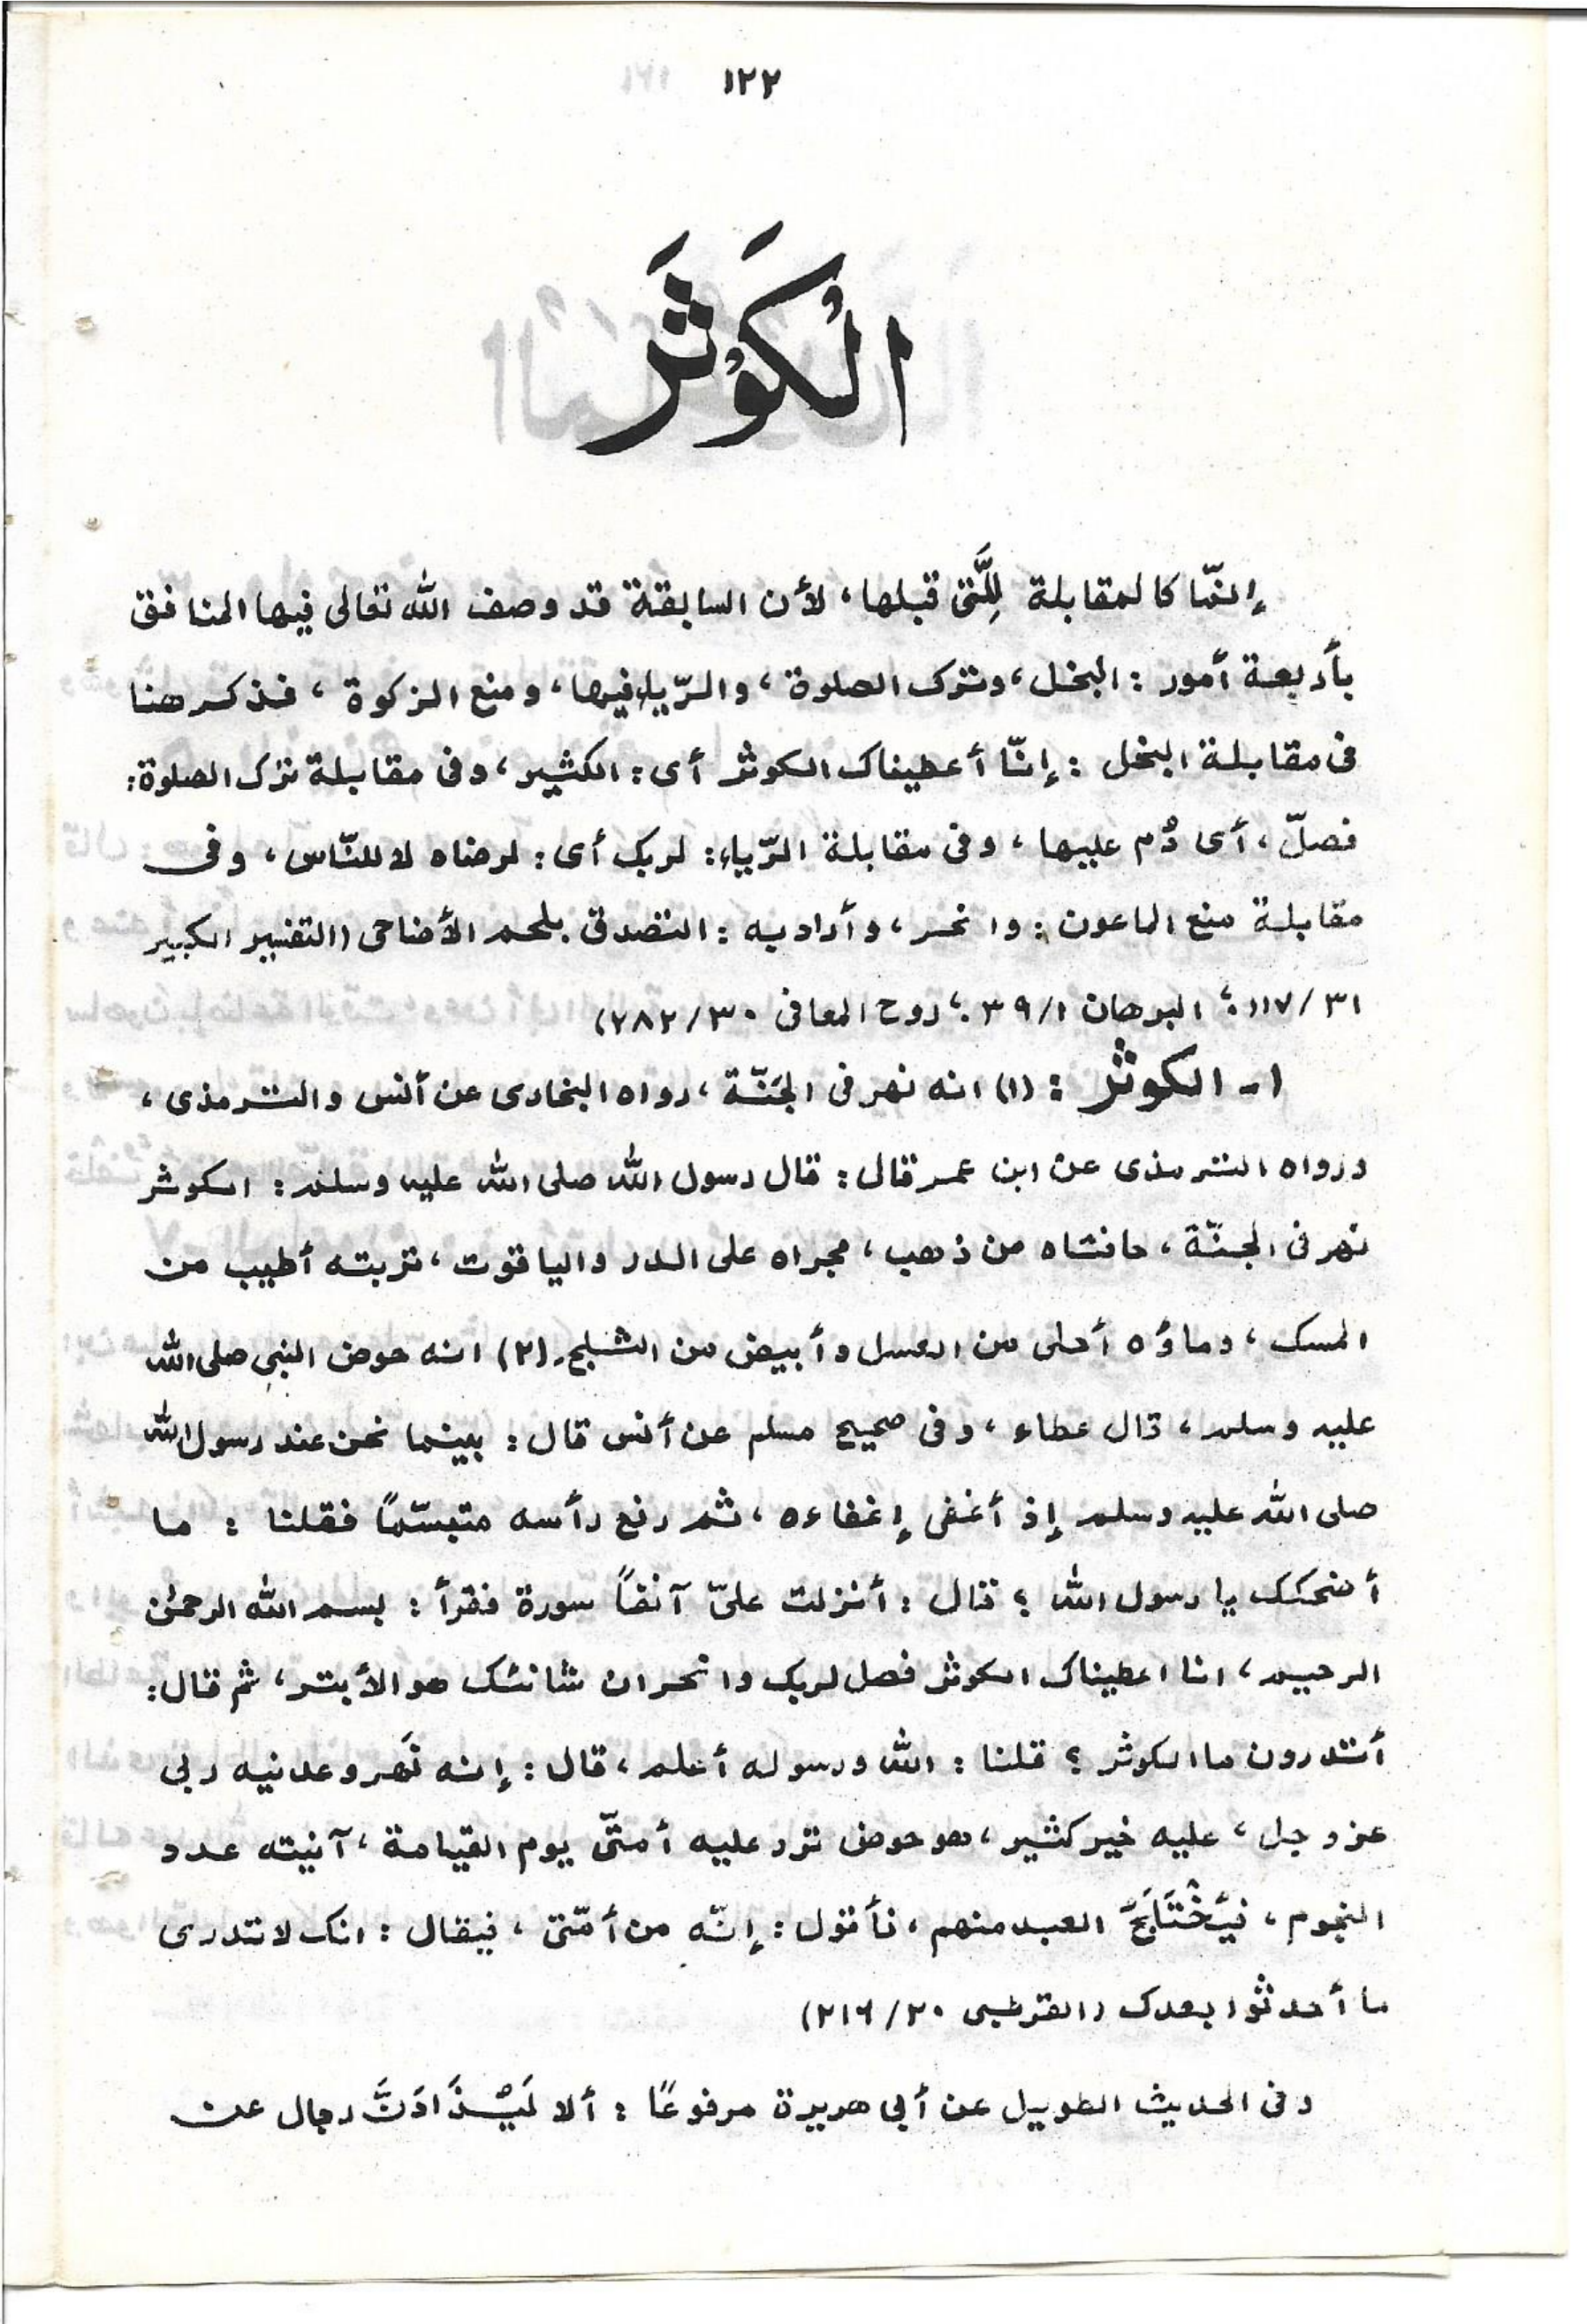 ١٢٢
الْكَوْثَرَ
إِنَّها كالمقابلة لِلَّتى قبلها، لأن السابقة قد وصف الله تعالى فيها المنافق
بأربعة أمور : البخل، وترك الصلوة، والرّياء فيها، ومنع الزكوة، فذكر هنا
فى مقابلة البخل : إنّا أعطيناك الكوثر أى: الكثير، وفى مقابلة ترك الصلوة:
فصلّ، أى دُم عليها، وفى مقابلة الرّياء: لربك أى: لرضاه لا للنّاس، وفى
مقابلة منع الماعون: وانحر، وأراد به: التصدق بلحم الأضاحى (التفسير الكبير
٣١/١١٧؛ البرهان ١/٣٩؛ روح المعانى ٣٠/٢٨٢)
١ـ الكوثر : (١) انه نهر فى الجَنّة، رواه البخارى عن أنس والترمذى،
ورواه الترمذى عن ابن عمر قال: قال رسول الله صلى الله عليه وسلم: الكوثر
نهر فى الجنّة، حافتاه من ذهب، مجراه على الدر والياقوت، تربته أطيب من
المسك، وماؤه أحلى من العسل وأبيض من الثلج. (٢) انه حوض النبي صلى الله
عليه وسلم، قال عطاء، وفى صحيح مسلم عن أنس قال: بينما نحن عند رسول الله
صلى الله عليه وسلم إذ أغفى إغفاءه، ثم رفع رأسه متبسّمًا فقلنا : ما
أضحكك يا رسول الله؟ قال: أنزلت علىّ آنفاً سورة فقرأ: بسم الله الرحمٰن
الرحيم، انا اعطيناك الكوثر فصل لربك وانحر ان شانئك هو الأبتر، ثم قال:
أتدرون ما الكوثر؟ قلنا: الله ورسوله أعلم، قال: إنه نَهر وعدنيه ربى
عز وجل، عليه خير كثير، هو حوض ترد عليه أمتّى يوم القيامة، آنيته عدد
النجوم، العبد منهم، فأقول: إنّه من أمّتى، فيقال: انك لا تدرى
ما أحدثوا بعدك (القرطبى ٢٠/٢١٦)
وفى الحديث الطويل عن أبى هريرة مرفوعًا: ألا لَيُذَادَنَّ رجال عن